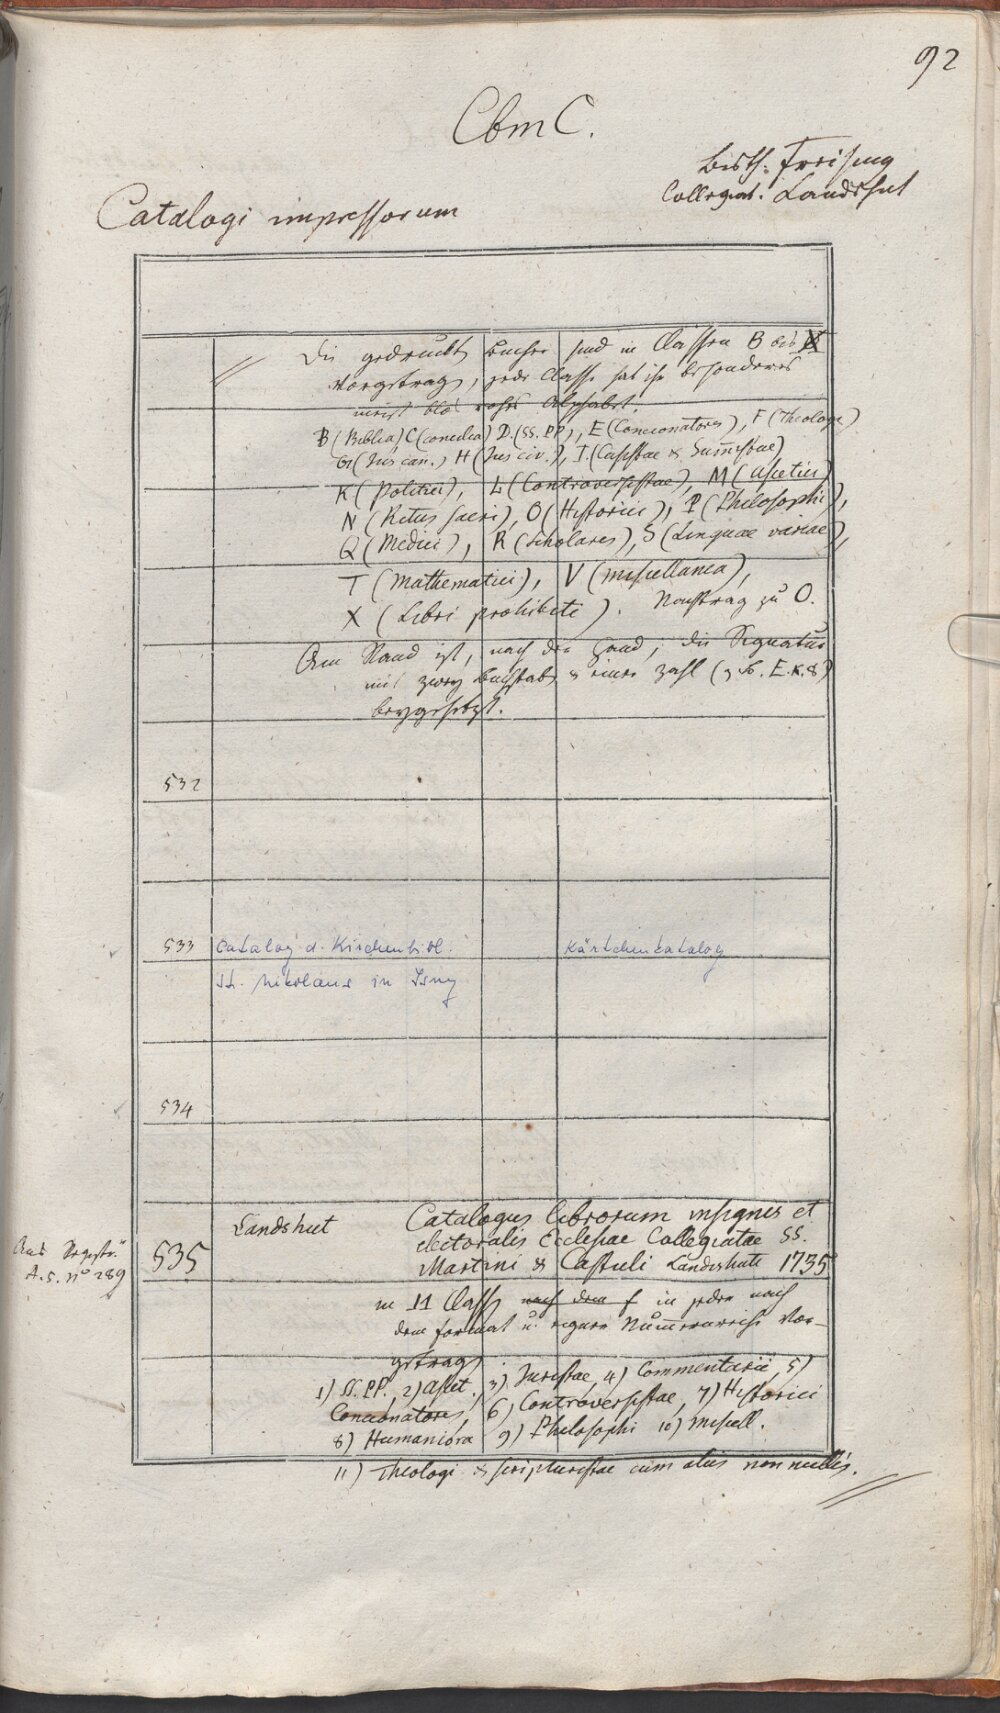 92
Cbm C.
Bisth. Freisung
Collegiat. Landshut
Catalogi impressorum
Die gedruckt Bücher sind in Classen B bis X
vorgetrag, jede Classe hat ihr besonderes
meist blos rohes Alphabet.
B (Biblia) C (concilia) D. (SS. PP), E (Concionatores), F (Theologi)
G (Jus can.) H (Jus civ.), I. (Casistae & Sum̄istae)
K (Politici), L (Controversistae), M (Ascetici)
N (Ritus sacri), O (Historici), P (Philosophi),
Q (Medici), R (Scholares), S (Linguae variae),
T (Mathematici), V (miscellanea),
X (Libri prohibiti). Nachtrag zu O.
Am Rand ist, nach der Hand, die Signatur
mit zwey Buchstab & einer Zahl (z. B. E. K. 8)
beygesetzt.
532
533 Catalog d. Kirchenbibl. Kärtchencatalog
St. Nikolaus in Isny
534
Aus Registr.
A. 5. No 289
535 Landshut Catalogus librorum insignis et
electoralis Ecclesiae Collegiatae SS.
Martini & Castuli Landishuti 1735
in 11 Class nach dem f in jeder nach
dem format u. eigner Num̄ernreihe vor-
getrag.
1) SS. PP., 2) Ascet., 3) Juristae, 4) Commentarii, 5)
Concionatores, 6) Controversistae, 7) Historici
8) Humaniora 9) Philosophi 10) Miscell.
11) Theologi & scripturistae cum aliis nonnullis.